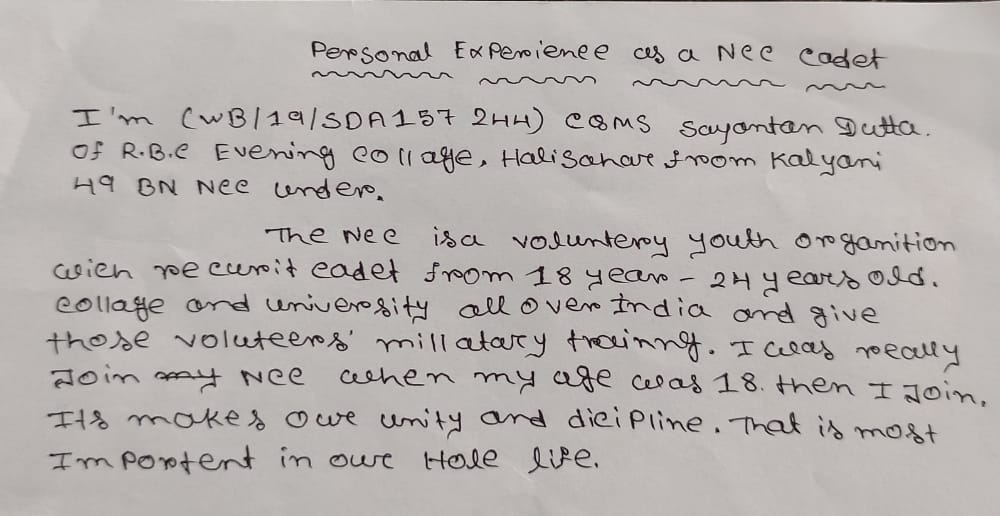 Personal Experience as a NCC Cadet
I'm (WB/19/SDA157 244) CQMS Sayantan Dutta.
Of R.B.C Evening Collage, Halisahar from Kalyani
49 BN NCC under.
The NCC is a voluntery youth organition
wich recurit cadet from 18 year - 24 years old.
Collage and university all over India and give
those voluteers' millatary trainng. I was really
Join my NCC when my age was 18. then I Join.
Its makes owr unity and dicipline. That is most
Importent in our Hole life.